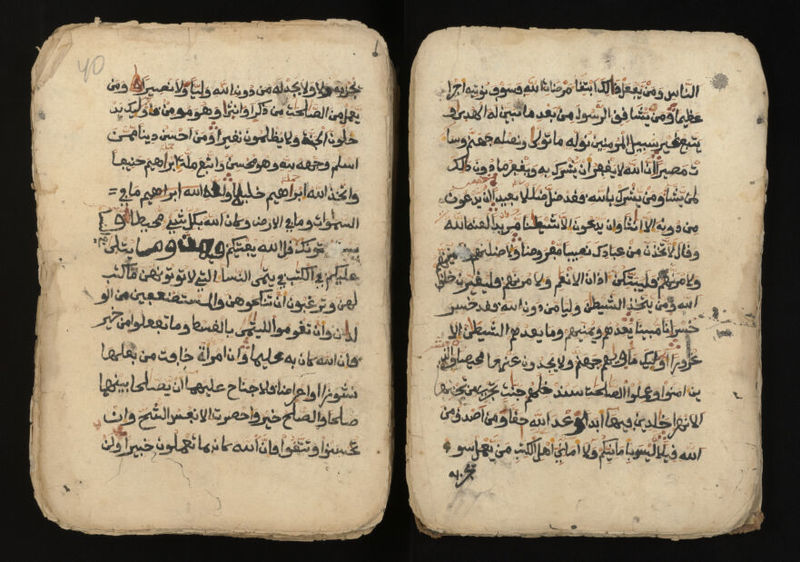 الناس ومن يفعل ذلك ابتغا مرضات الله فسوف نوتيه اجرا
عظيما ومن يشاقق الرسول من بعد ما تبين له الهدى و
يتبع غير سبيل المومنين نوله ما تولى ونصله جهنم وسا
ت مصيرا ان الله لا يغفر ان يشرك به ويغفر ما دون ذلك
لمن يشا ومن يشرك بالله فقد ضل ضللا بعيدا ان يدعون
من دونه الا انثا وان يدعون الا شيطنا مريدا لعنه الله
وقال لاتخذن من عبادك نصيبا مفروضا ولاضلنهم
ولامرنهم فليبتكن اذان الانعم ولامرنهم فليغيرن خلق
الله ومن يتخذ الشيطن وليا من دون الله فقد خسر
خسرانا مبينا يعدهم ويمنيهم وما يعدهم الشيطن الا
غرورا اوليك ماويهم جهنم ولا يجدون عنها محيصا والذ
ين امنوا وعملوا الصلحت سندخلهم جنت تجري من تحتها
الانهر خلدين فيها ابدا وعد الله حقا ومن اصدق من
الله قيلا ليس بامانيكم ولا اماني اهل الكتب من يعمل سو
يجز به
40
يجز به ولا يجد له من دون الله وليا ولا نصيرا ومن
يعمل من الصلحت من ذكر او انثى وهو مومن فاوليك يد
خلون الجنة ولا يظلمون نقيرا ومن احسن دينا ممن
اسلم وجهه لله وهو محسن واتبع ملة ابراهيم حنيفا
واتخذ الله ابراهيم خليلا ولله ما في
السموات وما في الارض وكان الله بكل شي محيطا و
يستفتونك قل الله يفتيكم فيهن وما يتلى
عليكم في الكتب في يتمى النسا التي لا توتونهن ما كتب
لهن وترغبون ان تنكحوهن والمستضعفين من الو
لدان وان تقوموا لليتمى بالقسط وما تفعلوا من خير
فان الله كان به عليما وان امراة خافت من بعلها
نشوزا او اعراضا فلا جناح عليهما ان يصلحا بينهما
صلحا والصلح خير واحضرت الانفس الشح وان
تحسنوا وتتقوا فان الله كان بما تعملون خبيرا ولن